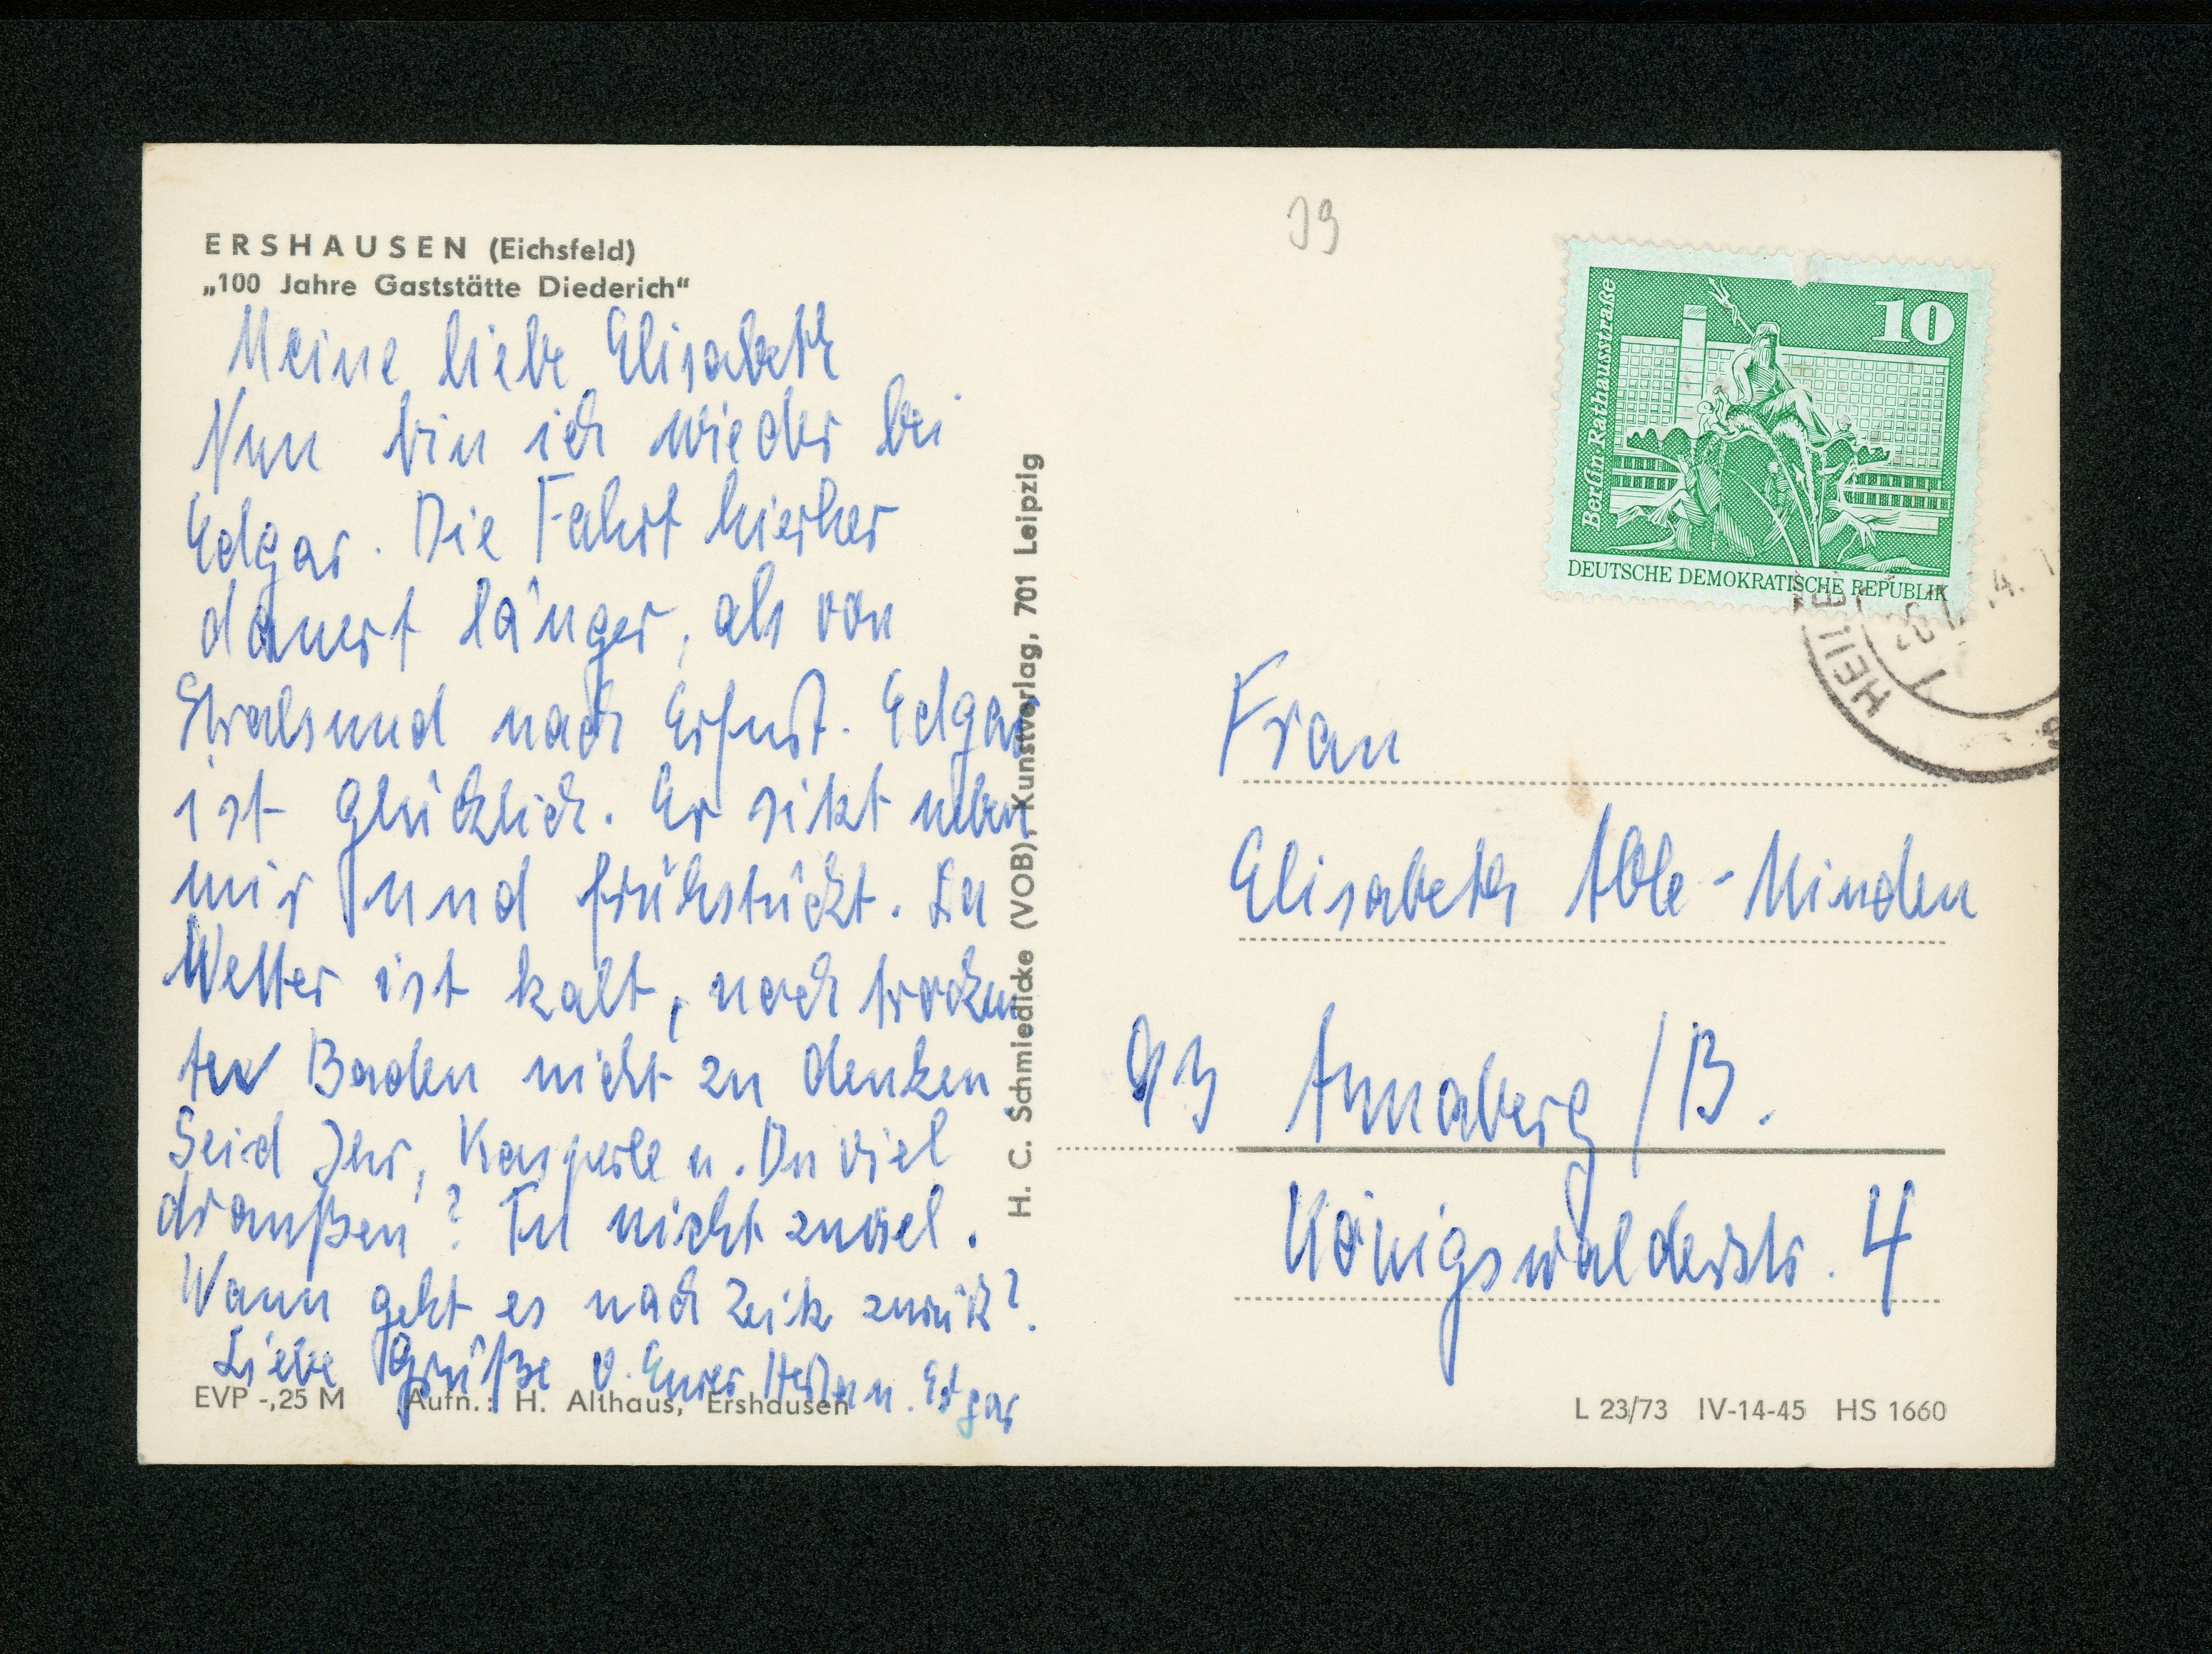 39
ERSHAUSEN (Eichsfeld)
„100 Jahre Gaststätte Diederich“
Meine liebe Elisabeth
Nun bin ich wieder bei
Edgar. Die Fahrt hierher
dauert länger, als von
Stralsund nach Erfurt. Edgar
ist glücklich. Er sitzt neben
mir und frühstückt. Das
Wetter ist kalt, noch trocken
Baden nicht zu denken
Seid Ihr, Kasperle u. Du viel
draußen? Tu nicht zuviel.
Wann geht es nach Zeitz zurück?
Liebe Grüße v. Eurer u. Edgar
EVP -,25 M Aufn.: H. Althaus, Ershausen
H. C. Schmiedicke (VOB), Kunstverlag, 701 Leipzig
10
Berlin, Rathausstraße
DEUTSCHE DEMOKRATISCHE REPUBLIK
HEILB
Frau
Elisabeth Abbe-Minden
93 Annaberg/B.
Königswalderstr. 4
L 23/73 IV-14-45 HS 1660